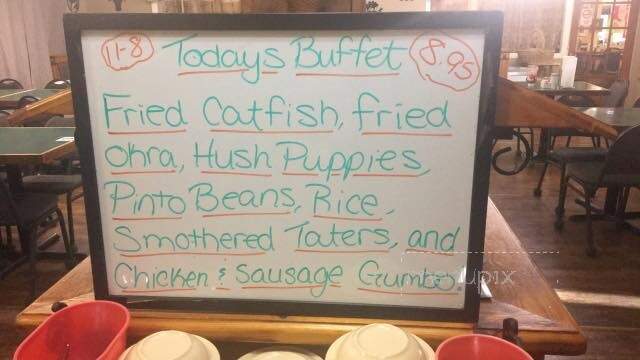 11-8 Todays Buffet 8.95
Fried Catfish, fried
Okra, Hush Puppies,
Pinto Beans, Rice,
Smothered Taters, and
Chicken & Sausage Gumbo